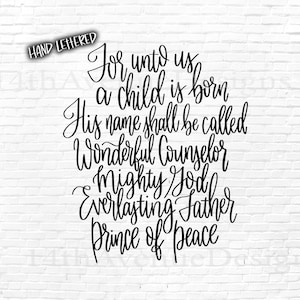 HAND LETTERED
For unto us
a child is born
His name shall be called
Wonderful Counselor
Mighty God
Everlasting Father
Prince of Peace